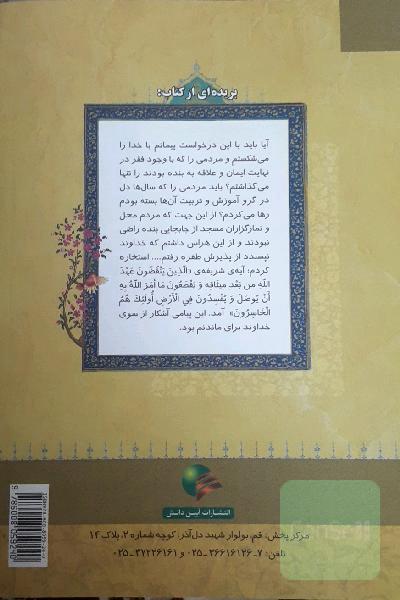 بریده‌ای از کتاب:
آیا باید با این درخواست پیمانم با خدا را
می‌شکستم و مردمی را که با وجود فقر در
نهایت ایمان و علاقه به بنده بودند را تنها
می‌گذاشتم؟ باید مردمی را که سال‌ها دل
در گرو آموزش و تربیت آن‌ها بسته بودم
رها می‌کردم؟ از این جهت که مردم محل
و نمازگزاران مسجد از جابجایی بنده راضی
نبودند و از این هراس داشتم که خداوند
نپسندد از پذیرش طفره رفتم.... استخاره
کردم؛ آیه‌ی شریفه‌ی «الَّذِینَ یَنْقُضُونَ عَهْدَ
اللَّهِ مِن بَعْدِ مِیثَاقِهِ وَ یَقْطَعُونَ مَا أَمَرَ اللَّهُ بِهِ
أَنْ یُوصَلَ وَ یُفْسِدُونَ فِی الْأَرْضِ أُولَئِكَ هُمُ
الْخَاسِرُونَ» آمد. این پیامی آشکار از سوی
خداوند برای ماندنم بود.
انتشارات آیین دانش
مرکز پخش: قم، بولوار شهید دل‌آذر، کوچه شماره ۲، پلاک ۱۴
تلفن: ۷-۳۶۶۱۶۱۲۶-۰۲۵ و ۳۷۲۲۶۱۶۱-۰۲۵